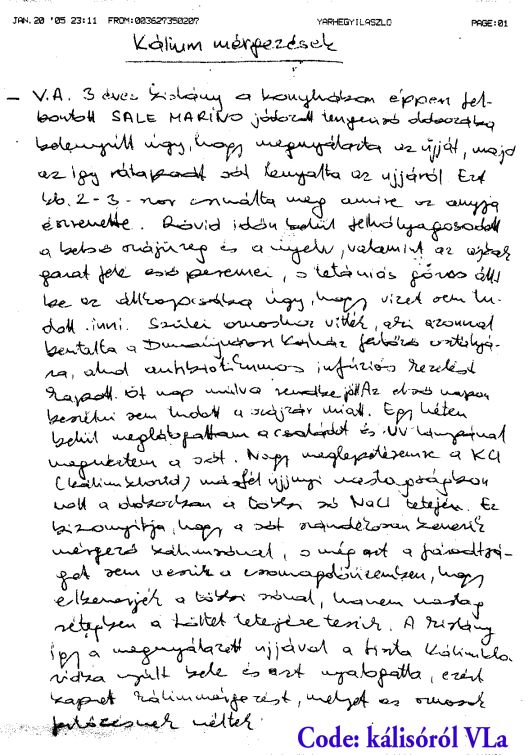 JAN.20 '05 23:11 FROM:003627390207 YARHEGYILASZLO PAGE:01
Kálium mérgezések
– V.A. 3 éves kislány a konyhában éppen fel-
bontott SALE MARINO jódozott tengeri só dobozába
belenyúlt úgy, hogy megnyálazta az ujját, majd
az így rátapadt sót lenyalta az ujjáról. Ezt
kb. 2-3-szor csinálta meg amire az anyja
észrevette. Rövid időn belül felhólyagosodott
a belső szájüreg és a nyelv, valamint az ajkak
garat felé eső peremei, s tetániás görcs állt
be az állkapcsába úgy, hogy vizet sem tu-
dott inni. Szülei orvoshoz vitték, aki azonnal
beutalta a Dunaújvárosi Kórház fertőző osztályá-
ra, ahol antibiotikumos infúziós kezelést
kapott. Öt nap múlva rendbe jött. Az első napon
beszélni sem tudott a szájzár miatt. Egy héten
belül meglátogattam a családot és UV lámpával
megnéztem a sót. Nagy meglepetésemre a KCl
(káliumklorid) másfél ujjnyi vastagságban
volt a dobozban a többi só NaCl tetején. Ez
bizonyítja, hogy a sót szándékosan keverik
mérgező káliumsóval, s még azt a fáradtsá-
got sem veszik a csomagolóüzemben, hogy
elkeverjék a többi sóval, hanem vastag
rétegben a töltet tetejére teszik. A kislány
így a megnyálazott ujjával a tiszta káliumklo-
ridba nyúlt bele és azt nyalogatta, ezért
kapott káliummérgezést, melyet az orvosok
fertőzésnek véltek.
Code: kálisóról VLa